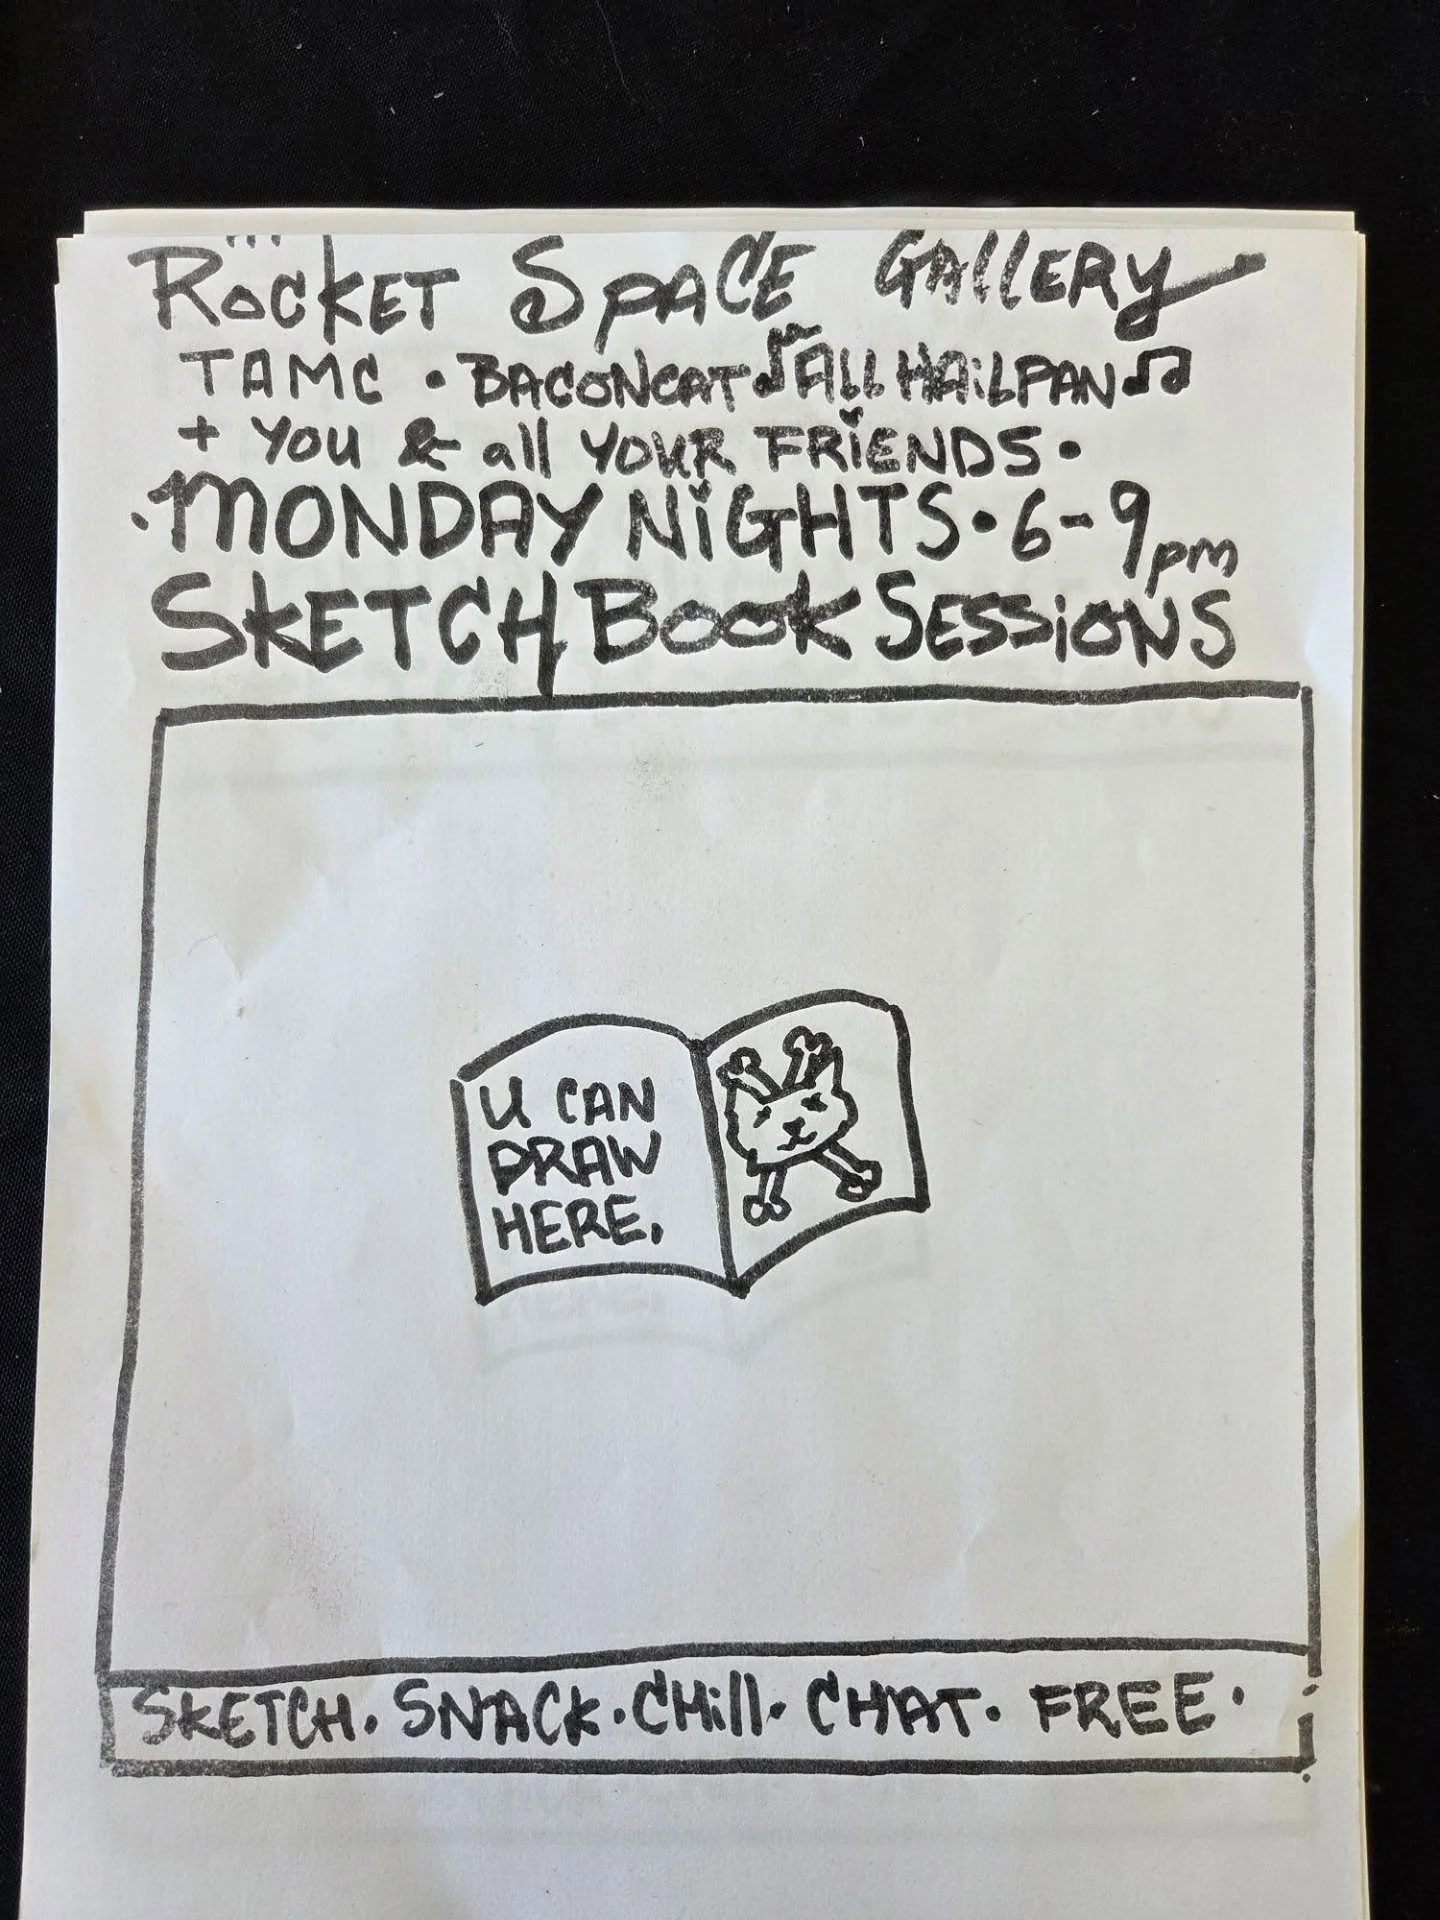 ROCKET SPACE GALLERY
TAMC • BACONCAT ♫ ALL HAiLPAN ♫
+ YOU & all YOUR FRiENDS •
• MONDAY NiGHTS • 6-9pm
SKETCH BOOK SESSiONS
U CAN
DRAW
HERE.
SKETCH • SNACK • CHill • CHAT • FREE •